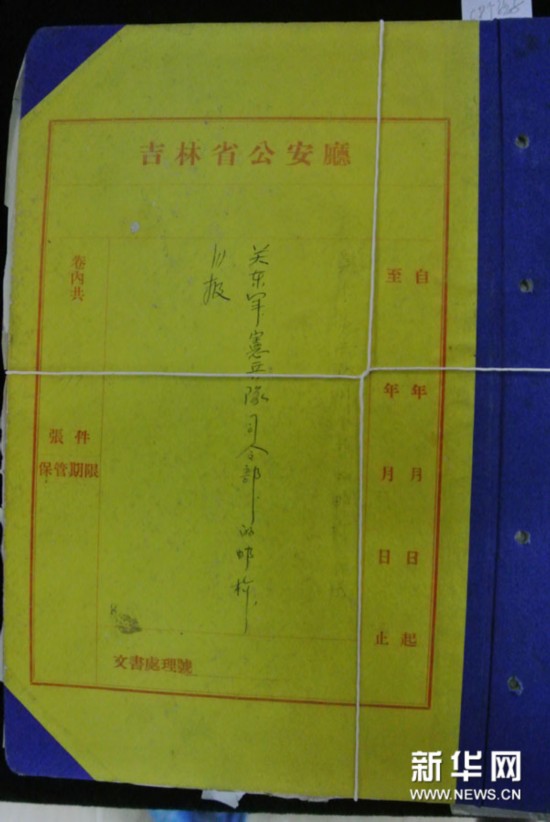 吉林省公安廳
自 年 月 日 起
至 年 月 日 止
关东军憲兵隊司令部的邮检
报
卷內共 張件
保管期限
文書處理號
新华网
WWW.NEWS.CN